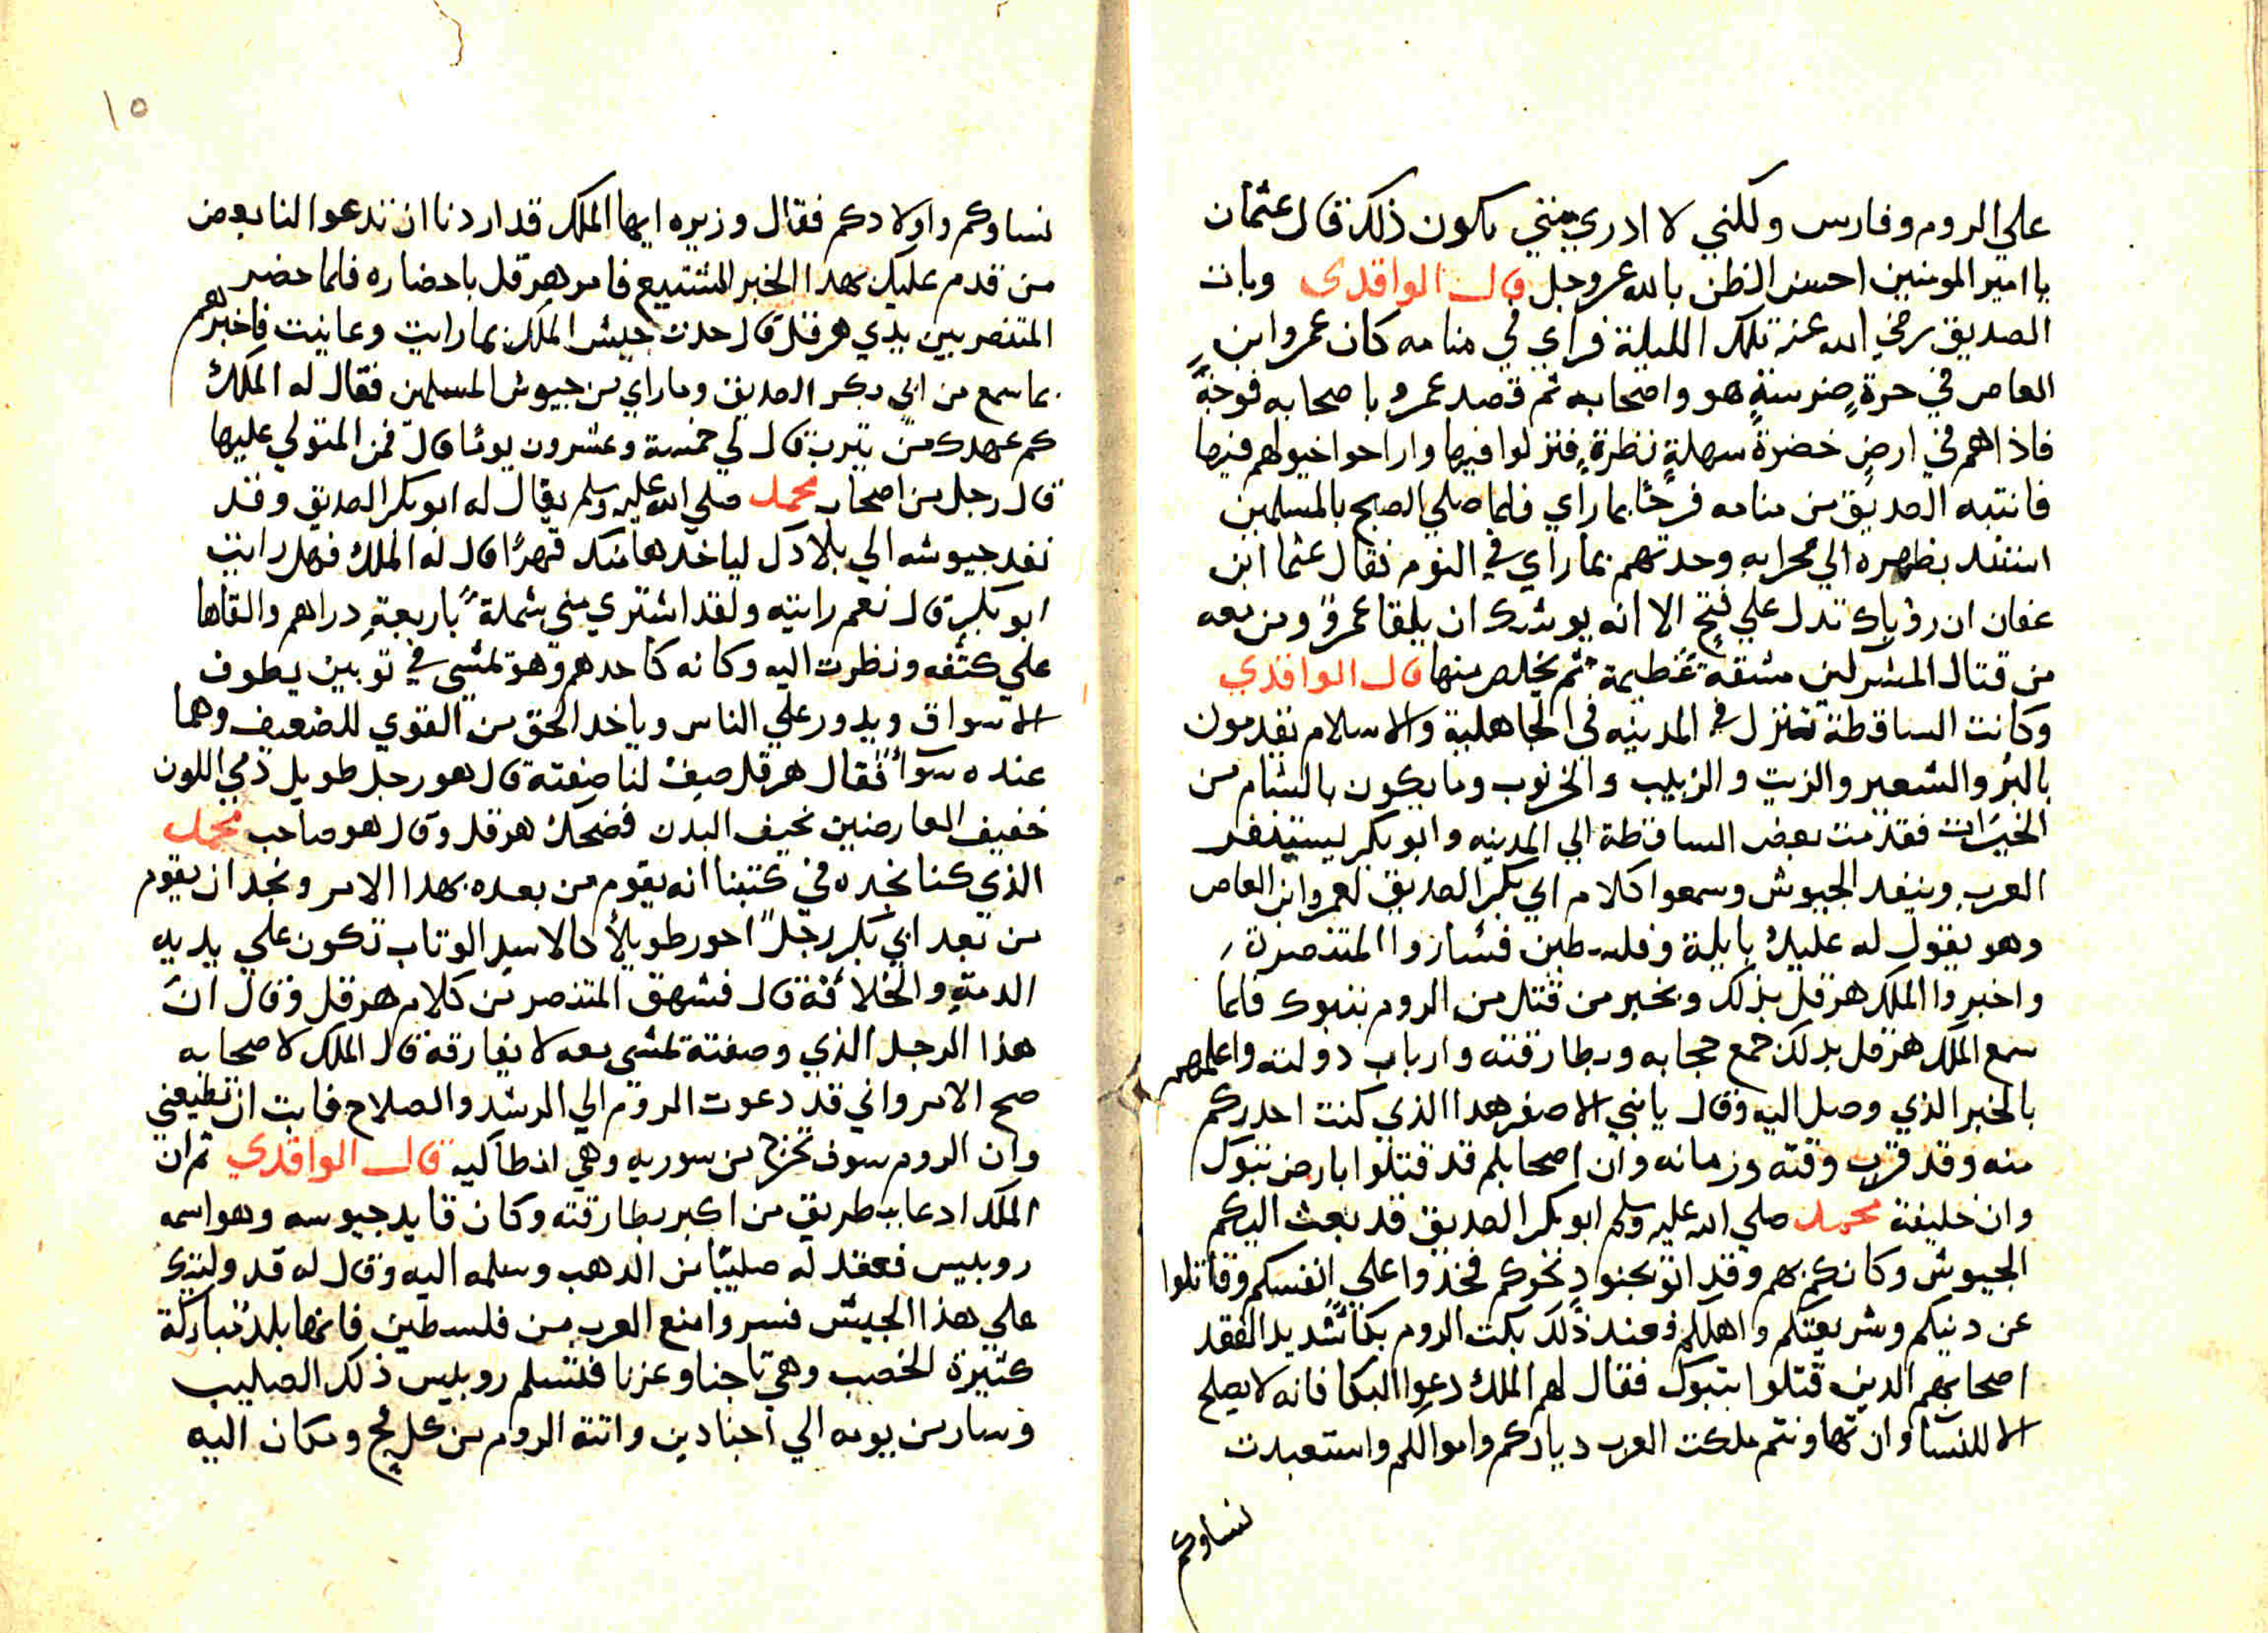 علي الروم وفارس ولكني لا ادري متي يكون ذلك قال عثمان
يا امير المومنين احسن الظن بالله عز وجل قال الواقدي وبات
الصديق رضي الله عنه تلك الليلة فراي في منامه كان عمروا بن
العاص في حرة ضرسة هو واصحابه ثم قصد عمرو باصحابه فوجة
فاذاهم في ارض خضرة سهلة نظرة فنزلوا فيها واراحوا خيولهم فيها
فانتبه الصديق من منامه فرحا بما راي فلما صلي الصبح بالمسلمين
استند بظهره الي محرابه وحدثهم بما راي في النوم فقال عثما ابن
عفان ان روياك تدل علي فتح الا انه يوشك ان يلقا عمرو ومن معه
من قتال المشركين مشقة عظيمة ثم يخلص منها قال الواقدي
وكانت الساقطة تنزل في المدينه في الجاهلية والاسلام يقدمون
بالبر والشعير والزيت والزبيب والخرنوب وما يكون بالشام من
الخيرات فقدمت بعض الساقطة الي المدينه وابو بكر يستنفر
العرب وينفد الجيوش وسمعوا كلام ابي بكر الصديق لعمروا بن العاص
وهو يقول له عليك بايلة وفلسطين فساروا المتنصرة
واخبروا الملك هرقل بذلك وبخبر من قتل من الروم بتبوك فلما
سمع الملك هرقل بدلك جمع حجابه وبطارقته وارباب دولته واعلمهم
بالخبر الذي وصل اليه وقال يا بني الاصفر هدا الذي كنت احدركم
منه وقد قرب وقته وزمانه وان اصحابكم قد قتلوا بارض تبوك
وان خليفة محمد صلي الله عليه وسلم ابو بكر الصديق قد بعث اليكم
الجيوش وكانكم بهم وقد اتو بجنود نحوكم فخدوا علي انفسكم وقاتلوا
عن دنيكم وشريعتكم واهلكم فعند ذلك بكت الروم بكا شديد الفقد
اصحابهم الدين قتلوا بتبوك فقال لهم الملك دعوا البكا فانه لا يصلح
الا للنسا وان تهاونتم ملكت العرب دياركم واموالكم واستعبدت
نساوكم
١٥
نساوكم واولادكم فقال وزيره ايها الملك قد اردنا ان تدعوا لنا بعض
من قدم عليك بهدا الخبر الشنيع فامر هرقل باحضاره فلما حضر
المتنصر بين يدي هرقل قال حدث جيش الملك بما رايت وعاينت فاخبرهم
بما سمع من ابي بكر الصديق وما راي من جيوش المسلمين فقال له الملك
كم عهدك من يترب قال لي خمسة وعشرون يوما قال فمن المتولي عليها
قال رجل من اصحاب محمد صلي الله عليه وسلم يقال له ابو بكر الصديق وقد
نفد جيوشه الي بلادك لياخدها منك قهرا قال له الملك فهل رايت
ابو بكر قال نعم رايته ولقد اشتري مني شملة باربعة دراهم والقاها
علي كتفه ونظرت اليه وكانه كاحدهم وهو يمشي في توبين يطوف
الاسواق ويدور علي الناس وياخد الحق من القوي للضعيف وهما
عنده سوا فقال هرقل صف لنا صفته قال هو رجل طويل ادمي اللون
خفيف العارضين نحيف البدن فضحك هرقل وقال هو صاحب محمد
الذي كنا نجده في كتبنا انه يقوم من بعده بهدا الامر ونجد ان يقوم
من بعد ابي بكر رجلا احور طويلا كالاسد الوتاب تكون علي يديه
الدمة والخلائقة قال فشهق المتنصر من كلام هرقل وقال ان
هذا الرجل الذي وصفته يمشي معه لا يفارقه قال الملك لاصحابه
صح الامر واني قد دعوت الروم الي الرشد والصلاح فابت ان تطيعني
وان الروم سوف تخرج من سوريه وهي انطاكيه قال الواقدي ثم ان
الملك ادعا ببطريق من اكبر بطارقته وكان قايد جيوسه وهو اسمه
روبيس فعقد له صليبا من الدهب وسلمه اليه وقال له قد وليتك
علي هذا الجيش فسر وامنع العرب من فلسطين فانها بلد مباركة
كثيرة الخصب وهي تاجنا وعزنا فتسلم روبيس ذلك الصليب
وسار من يومه الي اجنادين واتته الروم من كل فج وكان اليه